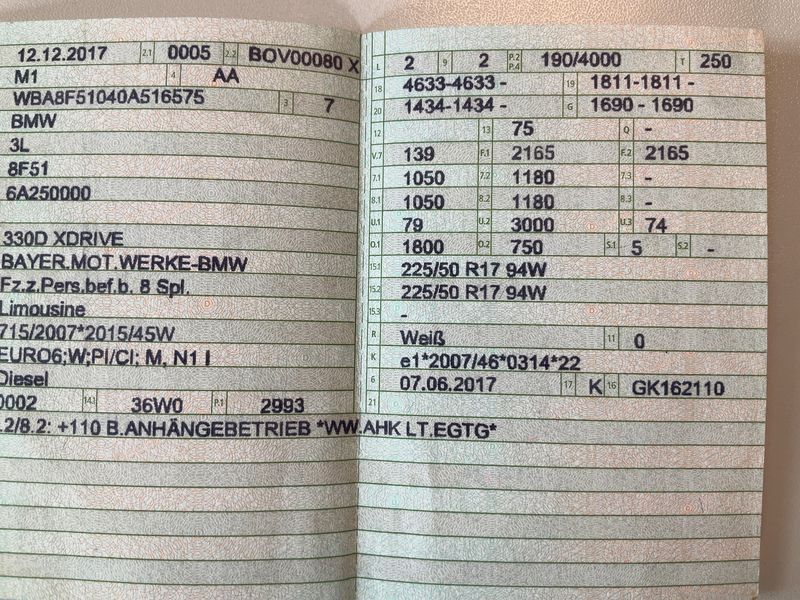 12.12.2017 2.1 0005 2.2 BOV00080 X
M1 4 AA
WBA8F51040A516575 3 7
BMW
3L
8F51
6A250000
330D XDRIVE
BAYER.MOT.WERKE-BMW
Fz.z.Pers.bef.b. 8 Spl.
Limousine
715/2007*2015/45W
EURO6;W;PI/CI; M, N1 I
Diesel
0002 14.1 36W0 P.1 2993
.2/8.2: +110 B.ANHÄNGEBETRIEB *WW.AHK LT.EGTG*
L 2 9 2 P.2 P.4 190/4000 T 250
18 4633-4633 - 19 1811-1811 -
20 1434-1434 - G 1690 - 1690
12 13 75 Q -
V.7 139 F.1 2165 F.2 2165
7.1 1050 7.2 1180 7.3 -
8.1 1050 8.2 1180 8.3 -
U.1 79 U.2 3000 U.3 74
O.1 1800 O.2 750 S.1 5 S.2 -
15.1 225/50 R17 94W
15.2 225/50 R17 94W
15.3 -
R Weiß 11 0
K e1*2007/46*0314*22
6 07.06.2017 17 K 16 GK162110
21